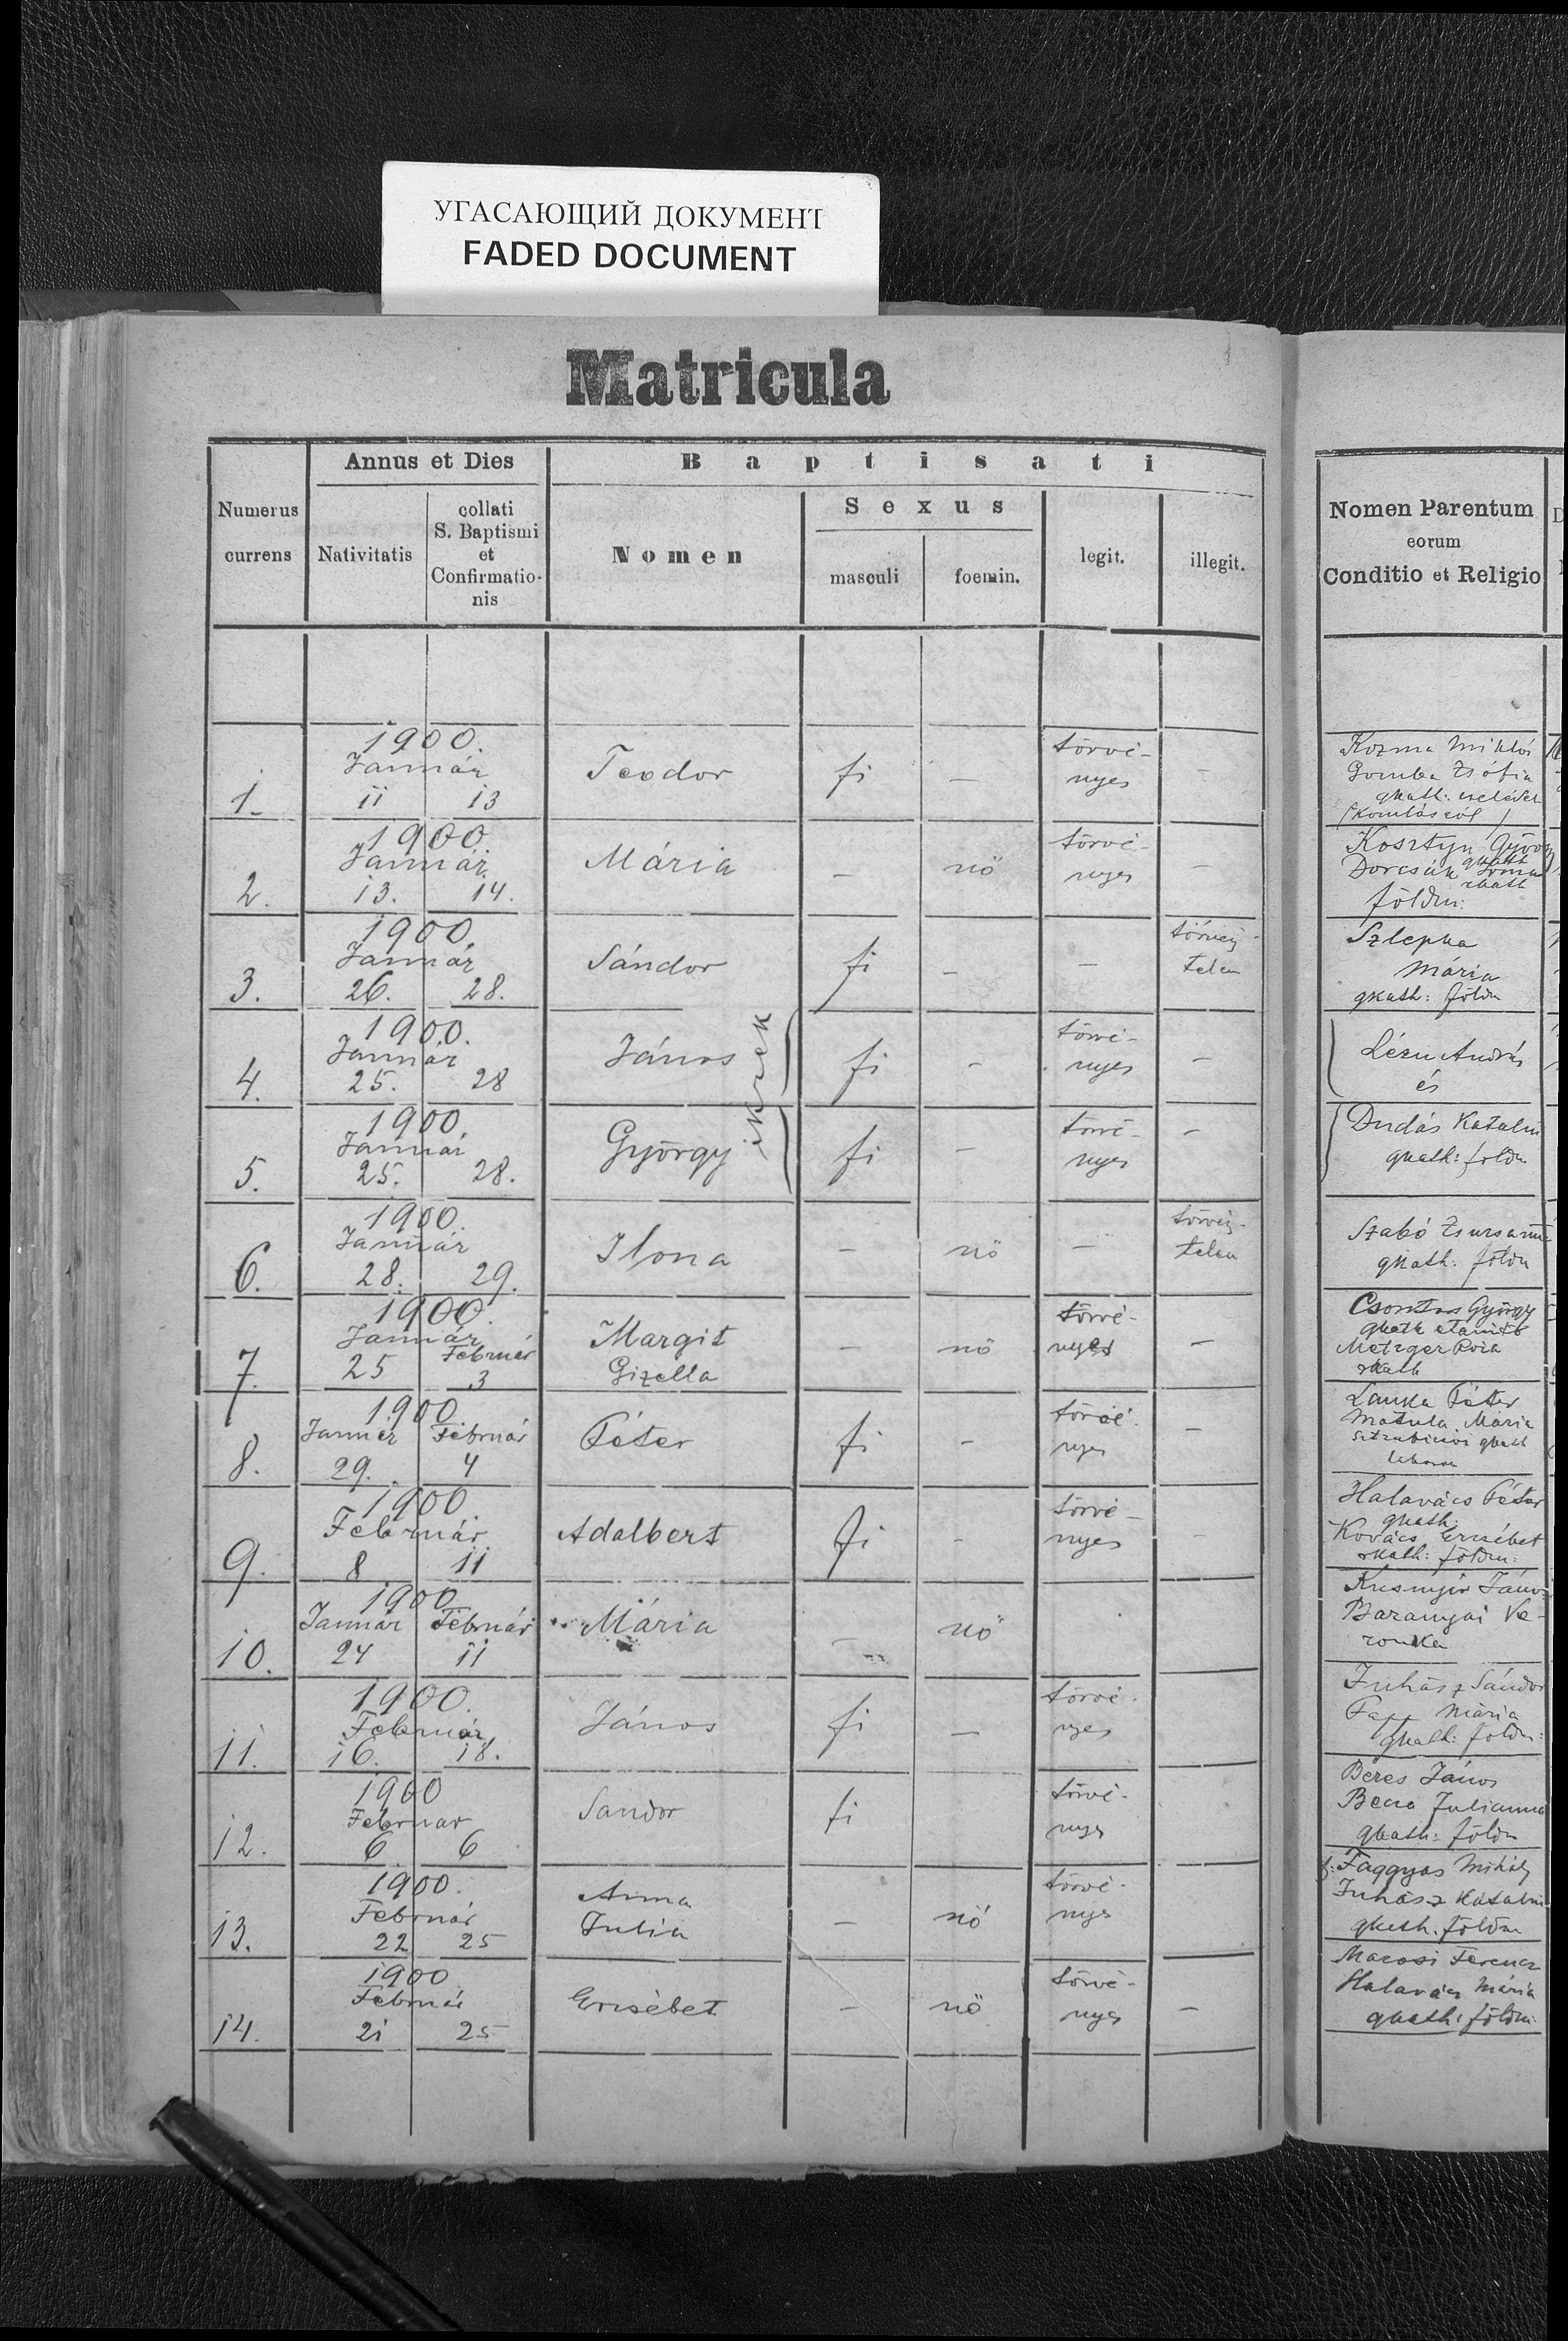 УГАСАЮЩИЙ ДОКУМЕНТ
FADED DOCUMENT
Matricula
Numerus currens
Annus et Dies
Nativitatis
collati
S. Baptismi
et
Confirmatio-
nis
Baptisati
Nomen
Sexus
masculi
foemin.
legit.
illegit.
Nomen Parentum
eorum
Conditio et Religio
1900.
Január
1. 11 13 Teodor fi — törvé-
nyes —
Kozma Miklós
Gomba Zsófia
gkath.
1900.
Január
2. 13. 14. Mária — nö törvé-
nyes —
Kosztyu György
gkath
Dorcsák
rkath
földm:
1900.
Január
3. 26. 28. Sándor fi — — törvény-
telen
Szlepka
Mária
gkath: földm
1900.
Január
4. 25. 28 János fi - törvé-
nyes —
ikrek
András
és
1900.
Január
5. 25. 28. György fi - törvé-
nyes -
Dudás Katalin
gkath: földm
1900.
Január
6. 28. 29. Ilona — nö — törvény-
telen
Szabó Zsuzsanna
gkath. földm
1900.
Január Február
7. 25 3 Margit
Gizella — nö törvé-
nyes —
Csontos György
gkath
Metzger Róza
rkath
1900
Január Február
8. 29. 4 Péter fi - törvé-
nyes —
Lanka Péter
Matula Mária
gkath
1900
Február
9. 8 11 Adalbert fi - törvé-
nyes -
Halavács Péter
gkath:
Kovács Erzsébet
rkath: földm:
1900
Január Február
10. 24 11 Mária — nö
János
Baranyai Ve-
ronka
1900.
Február
11. 16. 18. János fi — törvé-
nyes
Juhász Sándor
Papp Mária
gkath: földm:
1900
Februar
12. 6 6 Sandor fi törvé-
nyes
Béres János
Julianna
gkath: földm
1900.
Február
13. 22 25 Anna
Julia — nö törvé-
nyes
Faggyas Mihály
Juhász Katalin
gkath. földm
1900
Február
14. 21 25 Erzsébet — nö törvé-
nyes —
Ferencz
Halavács Mária
gkath: földm: